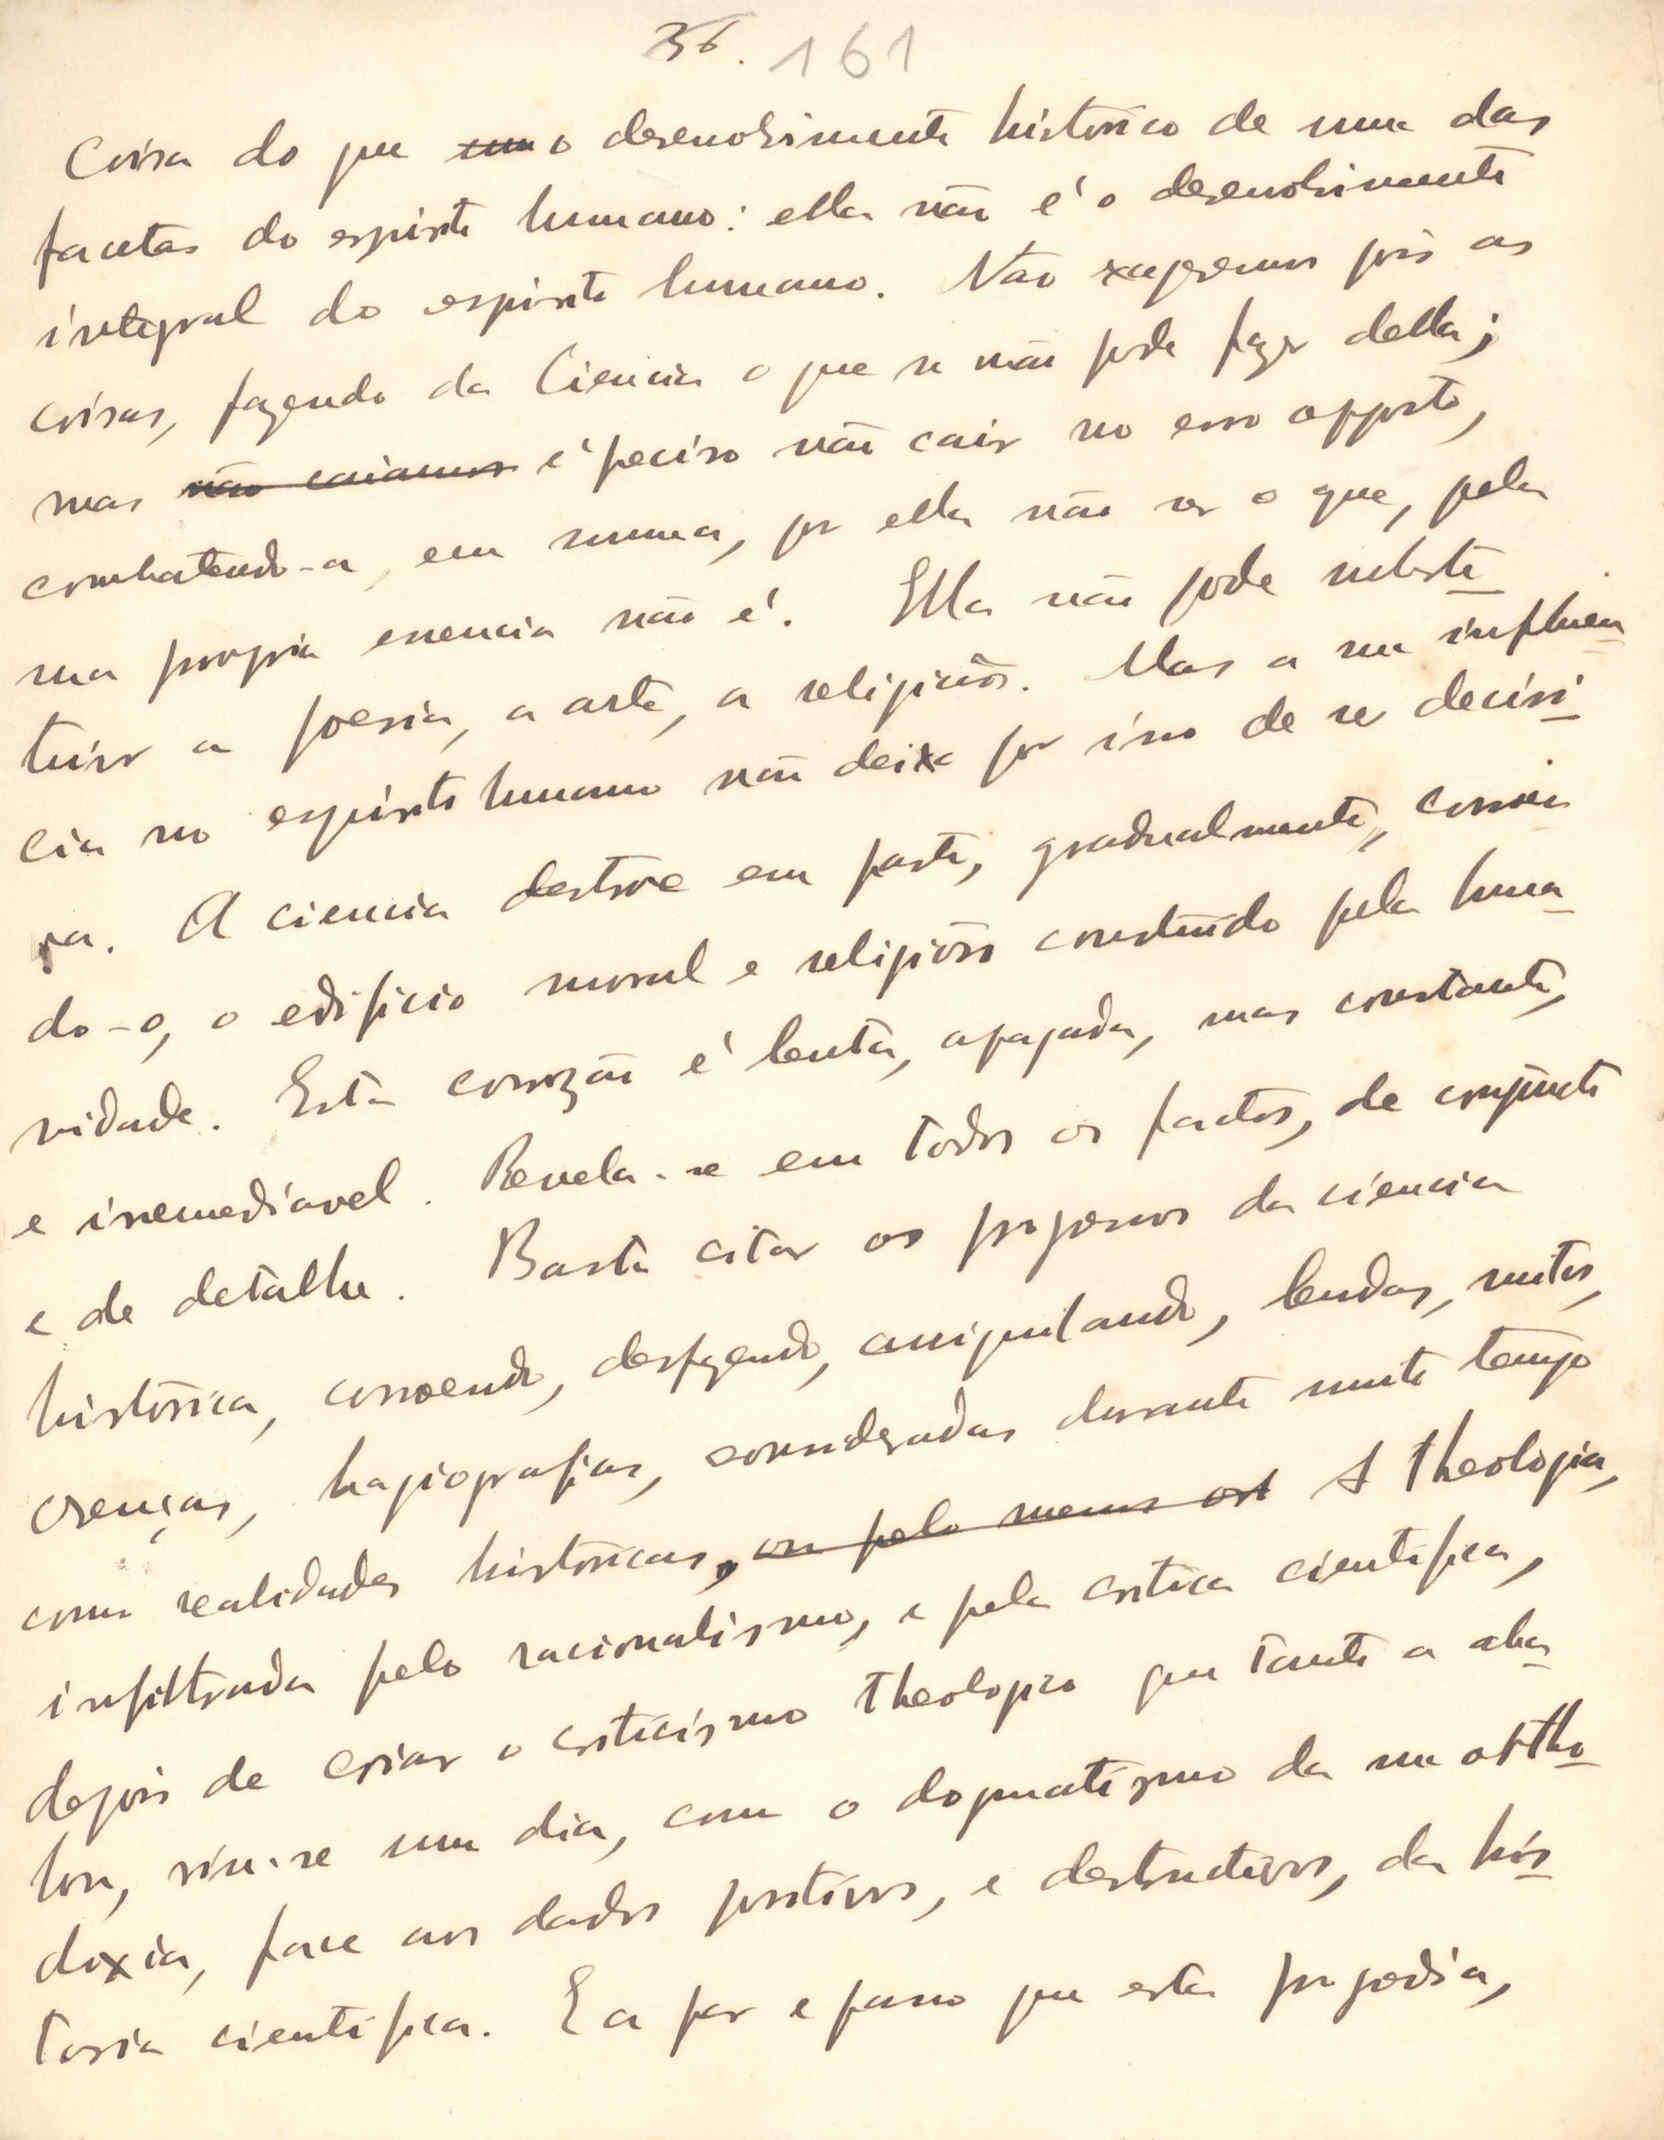 36. 161
Coisa do que um o desenvolvimento historico de uma das
facetas do espirito humano: ella não é o desenvolvimento
integral do espirito humano. Não exageremos pois as
coisas, fazendo da Ciencia o que se não pode fazer della;
mas não caiamos é preciso não cair no erro opposto,
combatendo-a, em summa, por ella não ser o que, pela
sua propria essencia não é. Ella não pode substi-
tuir a poesia, a arte, a religião. Mas a sua influen-
cia no espirito humano não deixa por isso de ser decisi-
va. A ciencia destroe em parte, gradualmente, corroen-
do-o, o edificio moral e religioso construido pela huma-
nidade. Esta corrozão é lenta, apagada, mas constante,
e irremediavel. Revela-se em todos os factos, de conjuncto
e de detalhe. Basta citar os progressos da ciencia
historica, corroendo, desfazendo, aniquilando, lendas, mitos,
crenças, hagiografias, consideradas durante muito tempo
como realidades historicas, ou pelo menos A theologia,
infiltrada pelo racionalismo, e pela critica cientifica,
depois de criar o criticismo theologico que tanto a aba-
lou, viu-se um dia, com o dogmatismo da sua ortho-
doxia, face aos dados positivos, e destructivos, da his-
toria cientifica. E a par e passo que esta progredia,